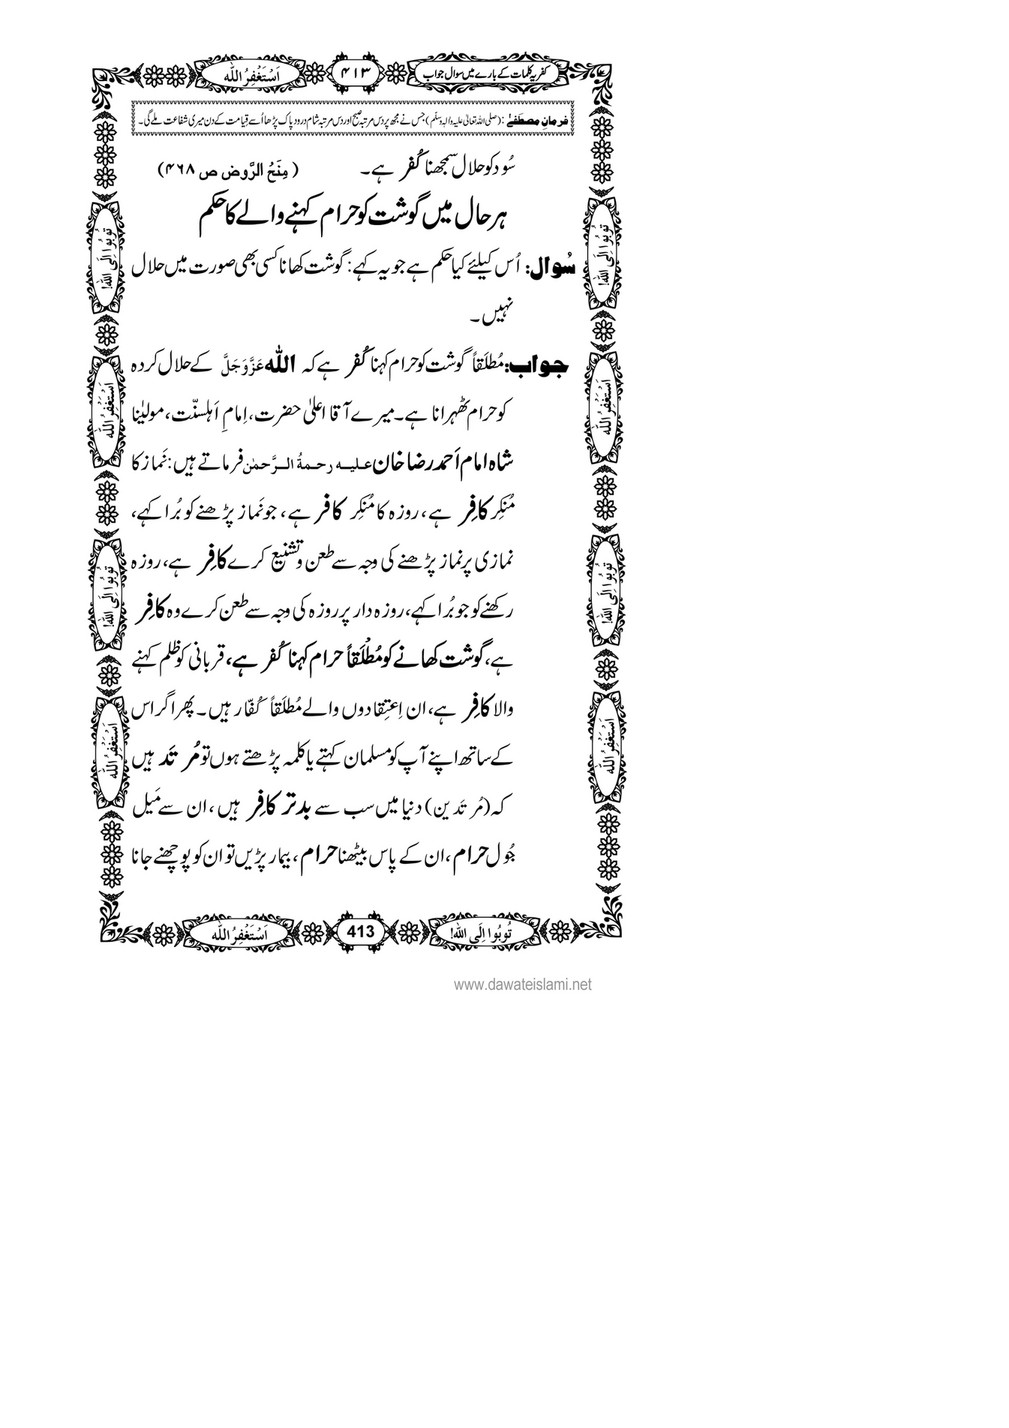 کفریہ کلمات کے بارے میں سوال جواب
٤١٣
اَسْتَغْفِرُ اللّٰه
فرمانِ مصطفےٰ: (صلی اللہ تعالیٰ علیہ والہٖ وسلّم) جس نے مجھ پر دس مرتبہ صبح اور دس مرتبہ شام درود پاک پڑھا اُسے قیامت کے دن میری شفاعت ملے گی۔
سُود کو حلال سمجھنا کُفر ہے۔ (مِنَحُ الرَّوض ص ٤٦٨)
ہر حال میں گوشت کو حرام کہنے والے کا حکم
سُوال: اُس کیلئے کیا حکم ہے جو یہ کہے: گوشت کھانا کسی بھی صورت میں حلال
نہیں۔
جواب: مُطلَقاً گوشت کو حرام کہنا کُفر ہے کہ اللّٰه عَزَّوَجَلَّ کے حلال کردہ
کو حرام ٹھہرانا ہے۔ میرے آقا اعلیٰ حضرت، اِمامِ اَہلسنّت، مولیٰنا
شاہ امام اَحمد رضا خان علیہ رحمۃُ الرَّحمٰن فرماتے ہیں: نَماز کا
مُنکِر کافِر ہے، روزہ کا مُنکِر کافر ہے، جو نَماز پڑھنے کو بُرا کہے،
نمازی پر نماز پڑھنے کی وجہ سے طعن و تشنیع کرے کافِر ہے، روزہ
رکھنے کو جو بُرا کہے، روزہ دار پر روزہ کی وجہ سے طعن کرے وہ کافِر
ہے، گوشت کھانے کو مُطْلَقاً حرام کہنا کُفر ہے، قربانی کو ظلم کہنے
والا کافِر ہے، ان اِعتِقادوں والے مُطلَقاً کُفّار ہیں۔ پھر اگر اس
کے ساتھ اپنے آپ کو مسلمان کہتے یا کلمہ پڑھتے ہوں تو مُرتَد ہیں
کہ (مُرتَدین) دنیا میں سب سے بدتر کافِر ہیں، ان سے مَیل
جُول حرام، ان کے پاس بیٹھنا حرام، بیمار پڑیں تو ان کو پوچھنے جانا
تُوبُوا اِلَی اللّٰه!
اَسْتَغْفِرُ اللّٰه
تُوبُوا اِلَی اللّٰه!
اَسْتَغْفِرُ اللّٰه
تُوبُوا اِلَی اللّٰه!
اَسْتَغْفِرُ اللّٰه
تُوبُوا اِلَی اللّٰه!
اَسْتَغْفِرُ اللّٰه
تُوبُوا اِلَی اللّٰه!
413
اَسْتَغْفِرُ اللّٰه
www.dawateislami.net